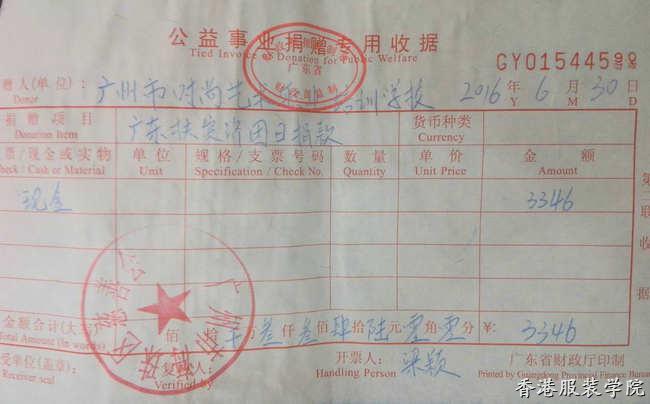 公益事业捐赠专用收据
Tied Invoice of Donation for Public Welfare
广东省
财政部监制
GY01544599
赠人(单位): 广州市时尚艺术 培训学校 2016 年 6 月 30 日
Donor Y M D
捐赠项目 广东扶贫济困日捐款 货币种类
Donation Item Currency
票/现金或实物 单位 规格/支票号码 数量 单价 金额
Check / Cash or Material Unit Specification / Check No. Quantity Unit Price Amount
现金 3346
第 联 收 据
广州市 慈善会
金额合计(大写) 佰 拾 万 叁仟 叁佰 肆拾 陆元 零角 零分 ¥: 3346
Total Amount (in words)
受单位(盖章): 复核人: 开票人: 梁颖 广东省财政厅印制
Receiver seal Verified by Handling Person Printed by Guangdong Provincial Finance Bureau
香港服装学院